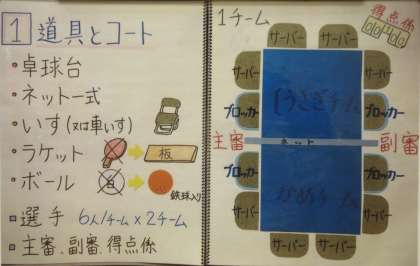 1 道具とコート
・卓球台
・ネット一式
・いす(又は車いす)
・ラケット 板
・ボール
鉄球入り
選手 6人/1チーム×2チーム
主審、副審、得点係
1チーム
得点係
サーバー サーバー
サーバー サーバー
ブロッカー うさぎチーム ブロッカー
主審 ネット 副審
ブロッカー かめチーム ブロッカー
サーバー サーバー
サーバー サーバー